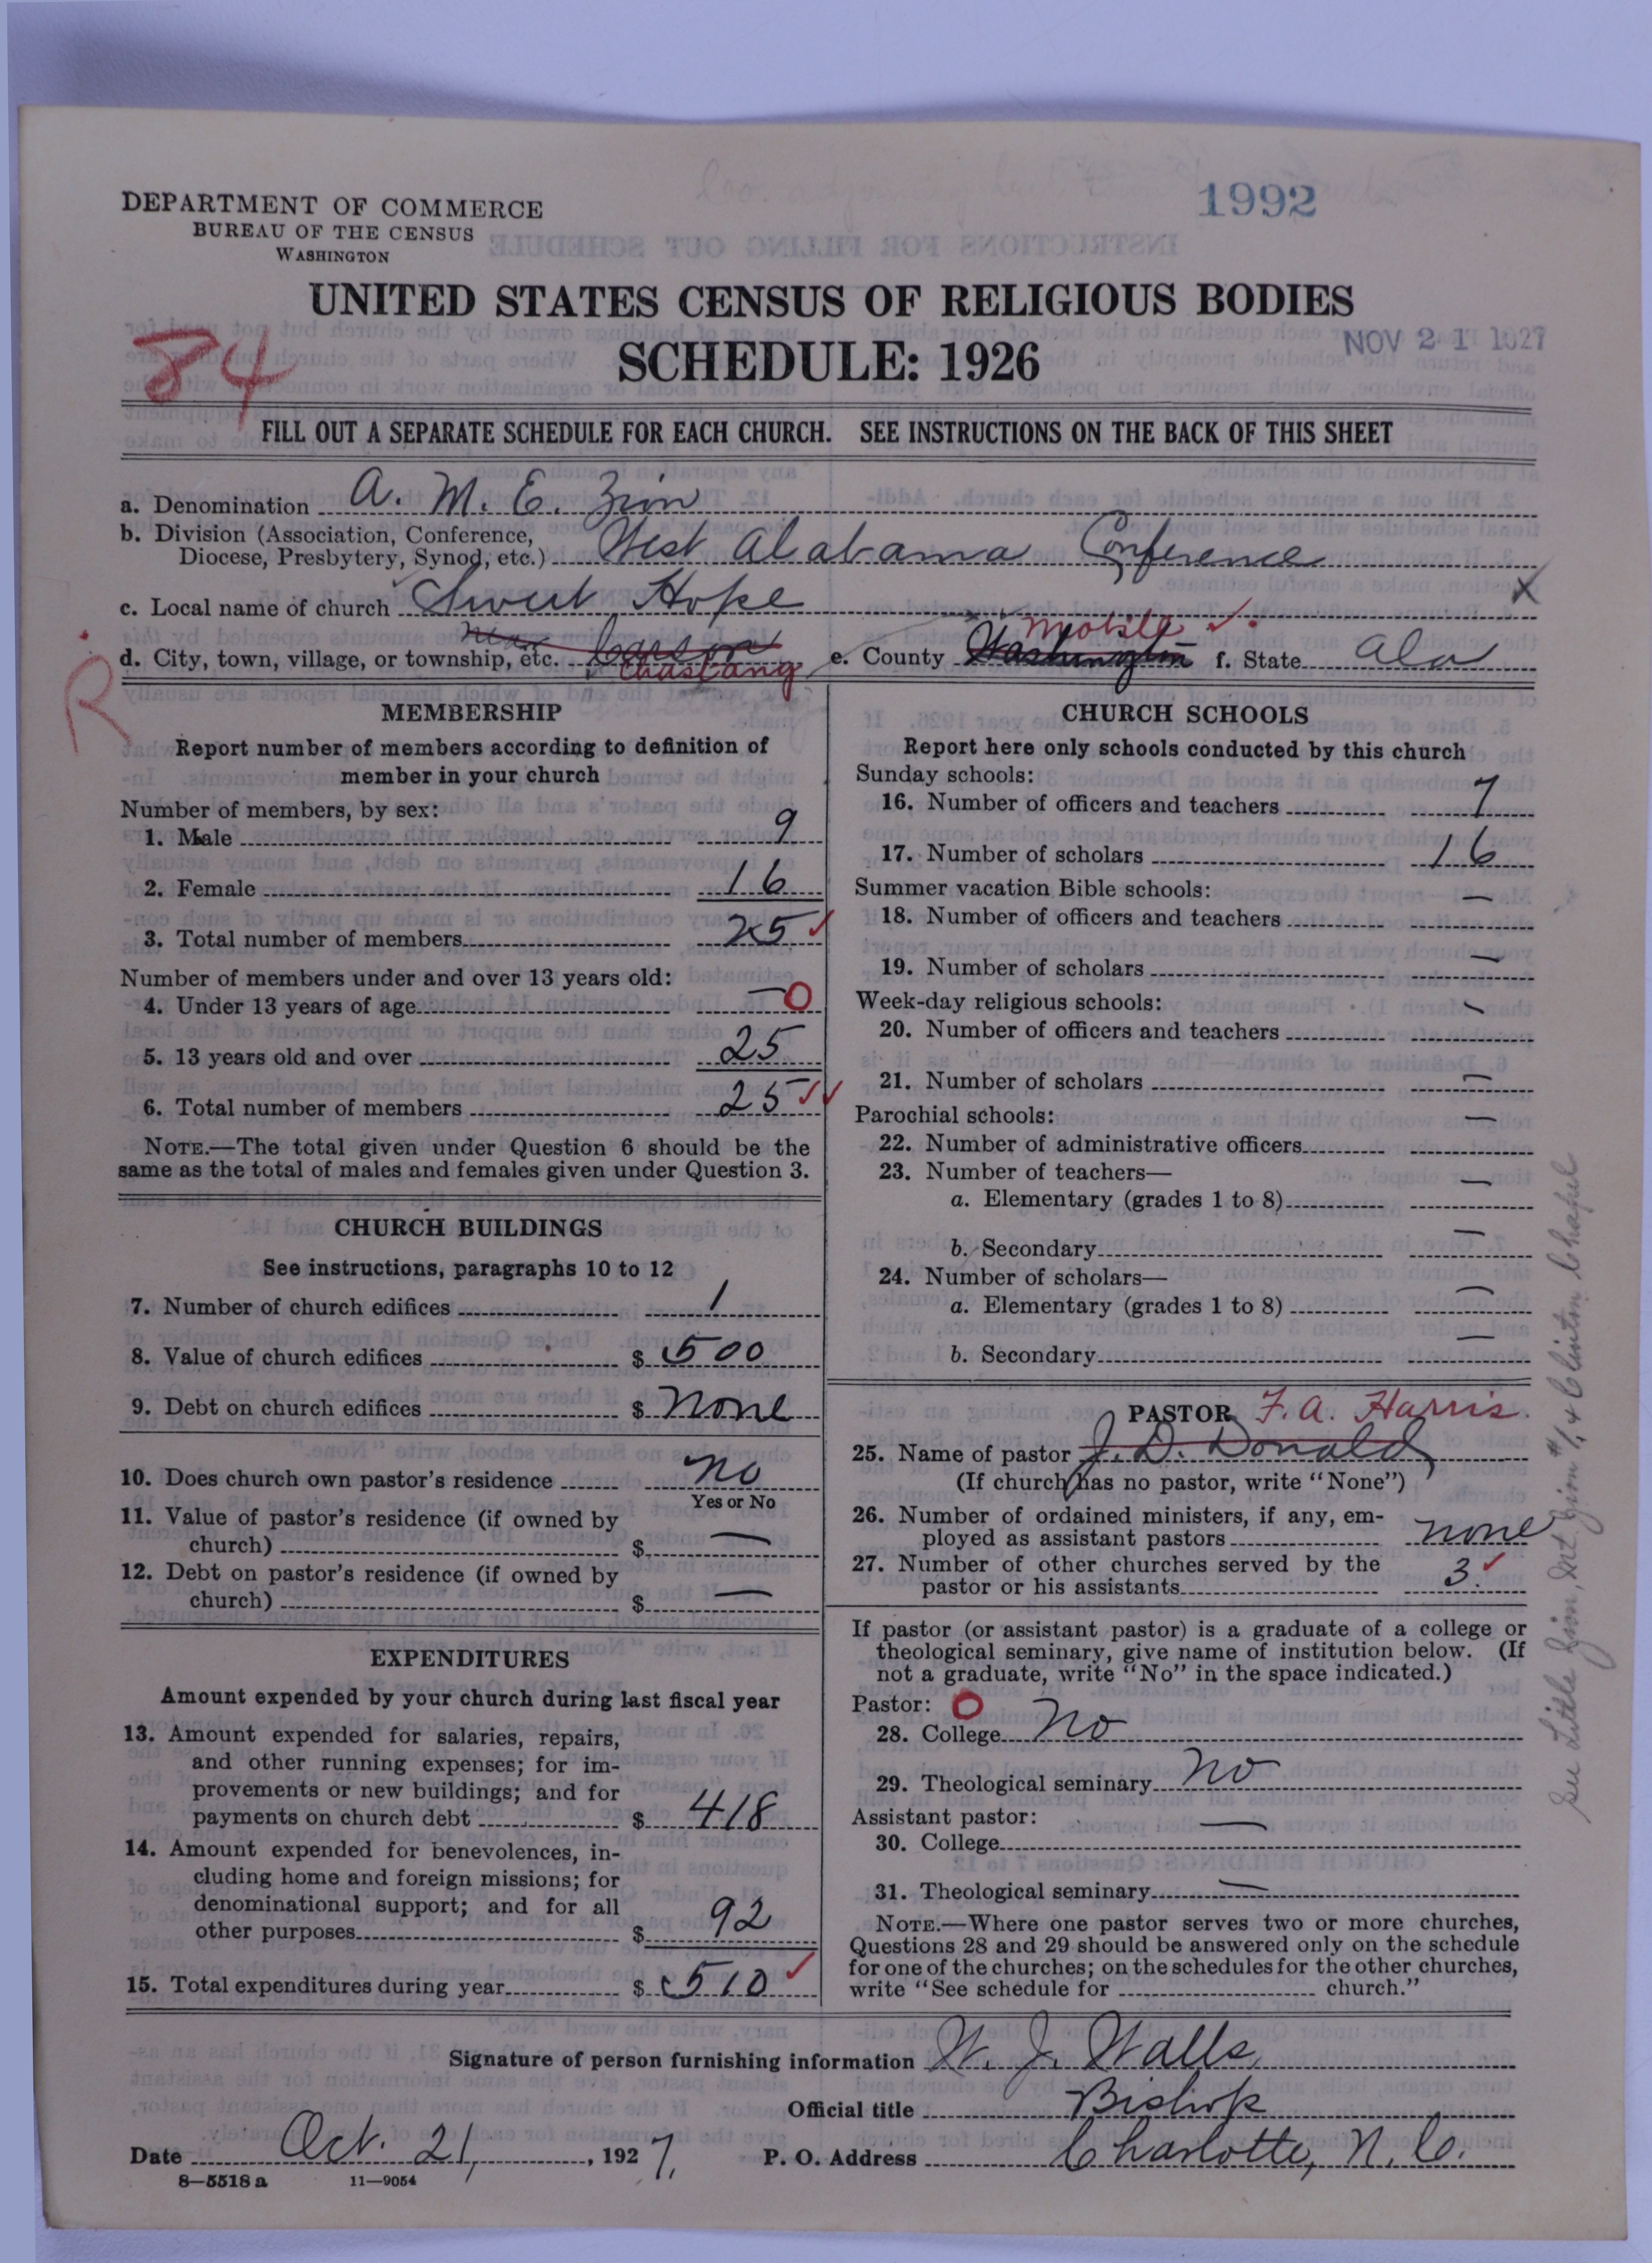 1992
DEPARTMENT OF COMMERCE
BUREAU OF THE CENSUS
WASHINGTON
UNITED STATES CENSUS OF RELIGIOUS BODIES
SCHEDULE: 1926
NOV 21 1927
84
FILL OUT A SEPARATE SCHEDULE FOR EACH CHURCH. SEE INSTRUCTIONS ON THE BACK OF THIS SHEET
a. Denomination A. M. E. Zion
b. Division (Association, Conference,
Diocese, Presbytery, Synod, etc.) West Alabama Conference
c. Local name of church Sweet Hope X
near Mobile ✓.
d. City, town, village, or township, etc. Carson e. County Washington f. State Ala
Chastang
R
MEMBERSHIP
Report number of members according to definition of
member in your church
Number of members, by sex:
1. Male 9
2. Female 16
3. Total number of members 25 ✓
Number of members under and over 13 years old:
4. Under 13 years of age — 0
5. 13 years old and over 25
6. Total number of members 25 ✓✓
NOTE.—The total given under Question 6 should be the
same as the total of males and females given under Question 3.
CHURCH BUILDINGS
See instructions, paragraphs 10 to 12
7. Number of church edifices 1
8. Value of church edifices $ 500
9. Debt on church edifices $ None
10. Does church own pastor's residence No
Yes or No
11. Value of pastor's residence (if owned by
church) $ —
12. Debt on pastor's residence (if owned by
church) $ —
EXPENDITURES
Amount expended by your church during last fiscal year
13. Amount expended for salaries, repairs,
and other running expenses; for im-
provements or new buildings; and for
payments on church debt $ 418
14. Amount expended for benevolences, in-
cluding home and foreign missions; for
denominational support; and for all
other purposes $ 92
15. Total expenditures during year $ 510 ✓
CHURCH SCHOOLS
Report here only schools conducted by this church
Sunday schools:
16. Number of officers and teachers 7
17. Number of scholars 16
Summer vacation Bible schools:
18. Number of officers and teachers —
19. Number of scholars —
Week-day religious schools:
20. Number of officers and teachers —
21. Number of scholars —
Parochial schools:
22. Number of administrative officers —
23. Number of teachers—
a. Elementary (grades 1 to 8) —
b. Secondary —
24. Number of scholars—
a. Elementary (grades 1 to 8) —
b. Secondary —
PASTOR F. A. Harris.
25. Name of pastor J. D. Donald
(If church has no pastor, write "None")
26. Number of ordained ministers, if any, em-
ployed as assistant pastors None
27. Number of other churches served by the
pastor or his assistants 3. ✓
If pastor (or assistant pastor) is a graduate of a college or
theological seminary, give name of institution below. (If
not a graduate, write "No" in the space indicated.)
Pastor: O
28. College No
29. Theological seminary No
Assistant pastor:
30. College —
31. Theological seminary —
NOTE.—Where one pastor serves two or more churches,
Questions 28 and 29 should be answered only on the schedule
for one of the churches; on the schedules for the other churches,
write "See schedule for church."
See Little Zion, Mt. Zion #1, & Clinton Chapel
Signature of person furnishing information W. J. Walls
Official title Bishop
Date Oct. 21, 1927. P. O. Address Charlotte, N. C.
8—5518 a 11—9054